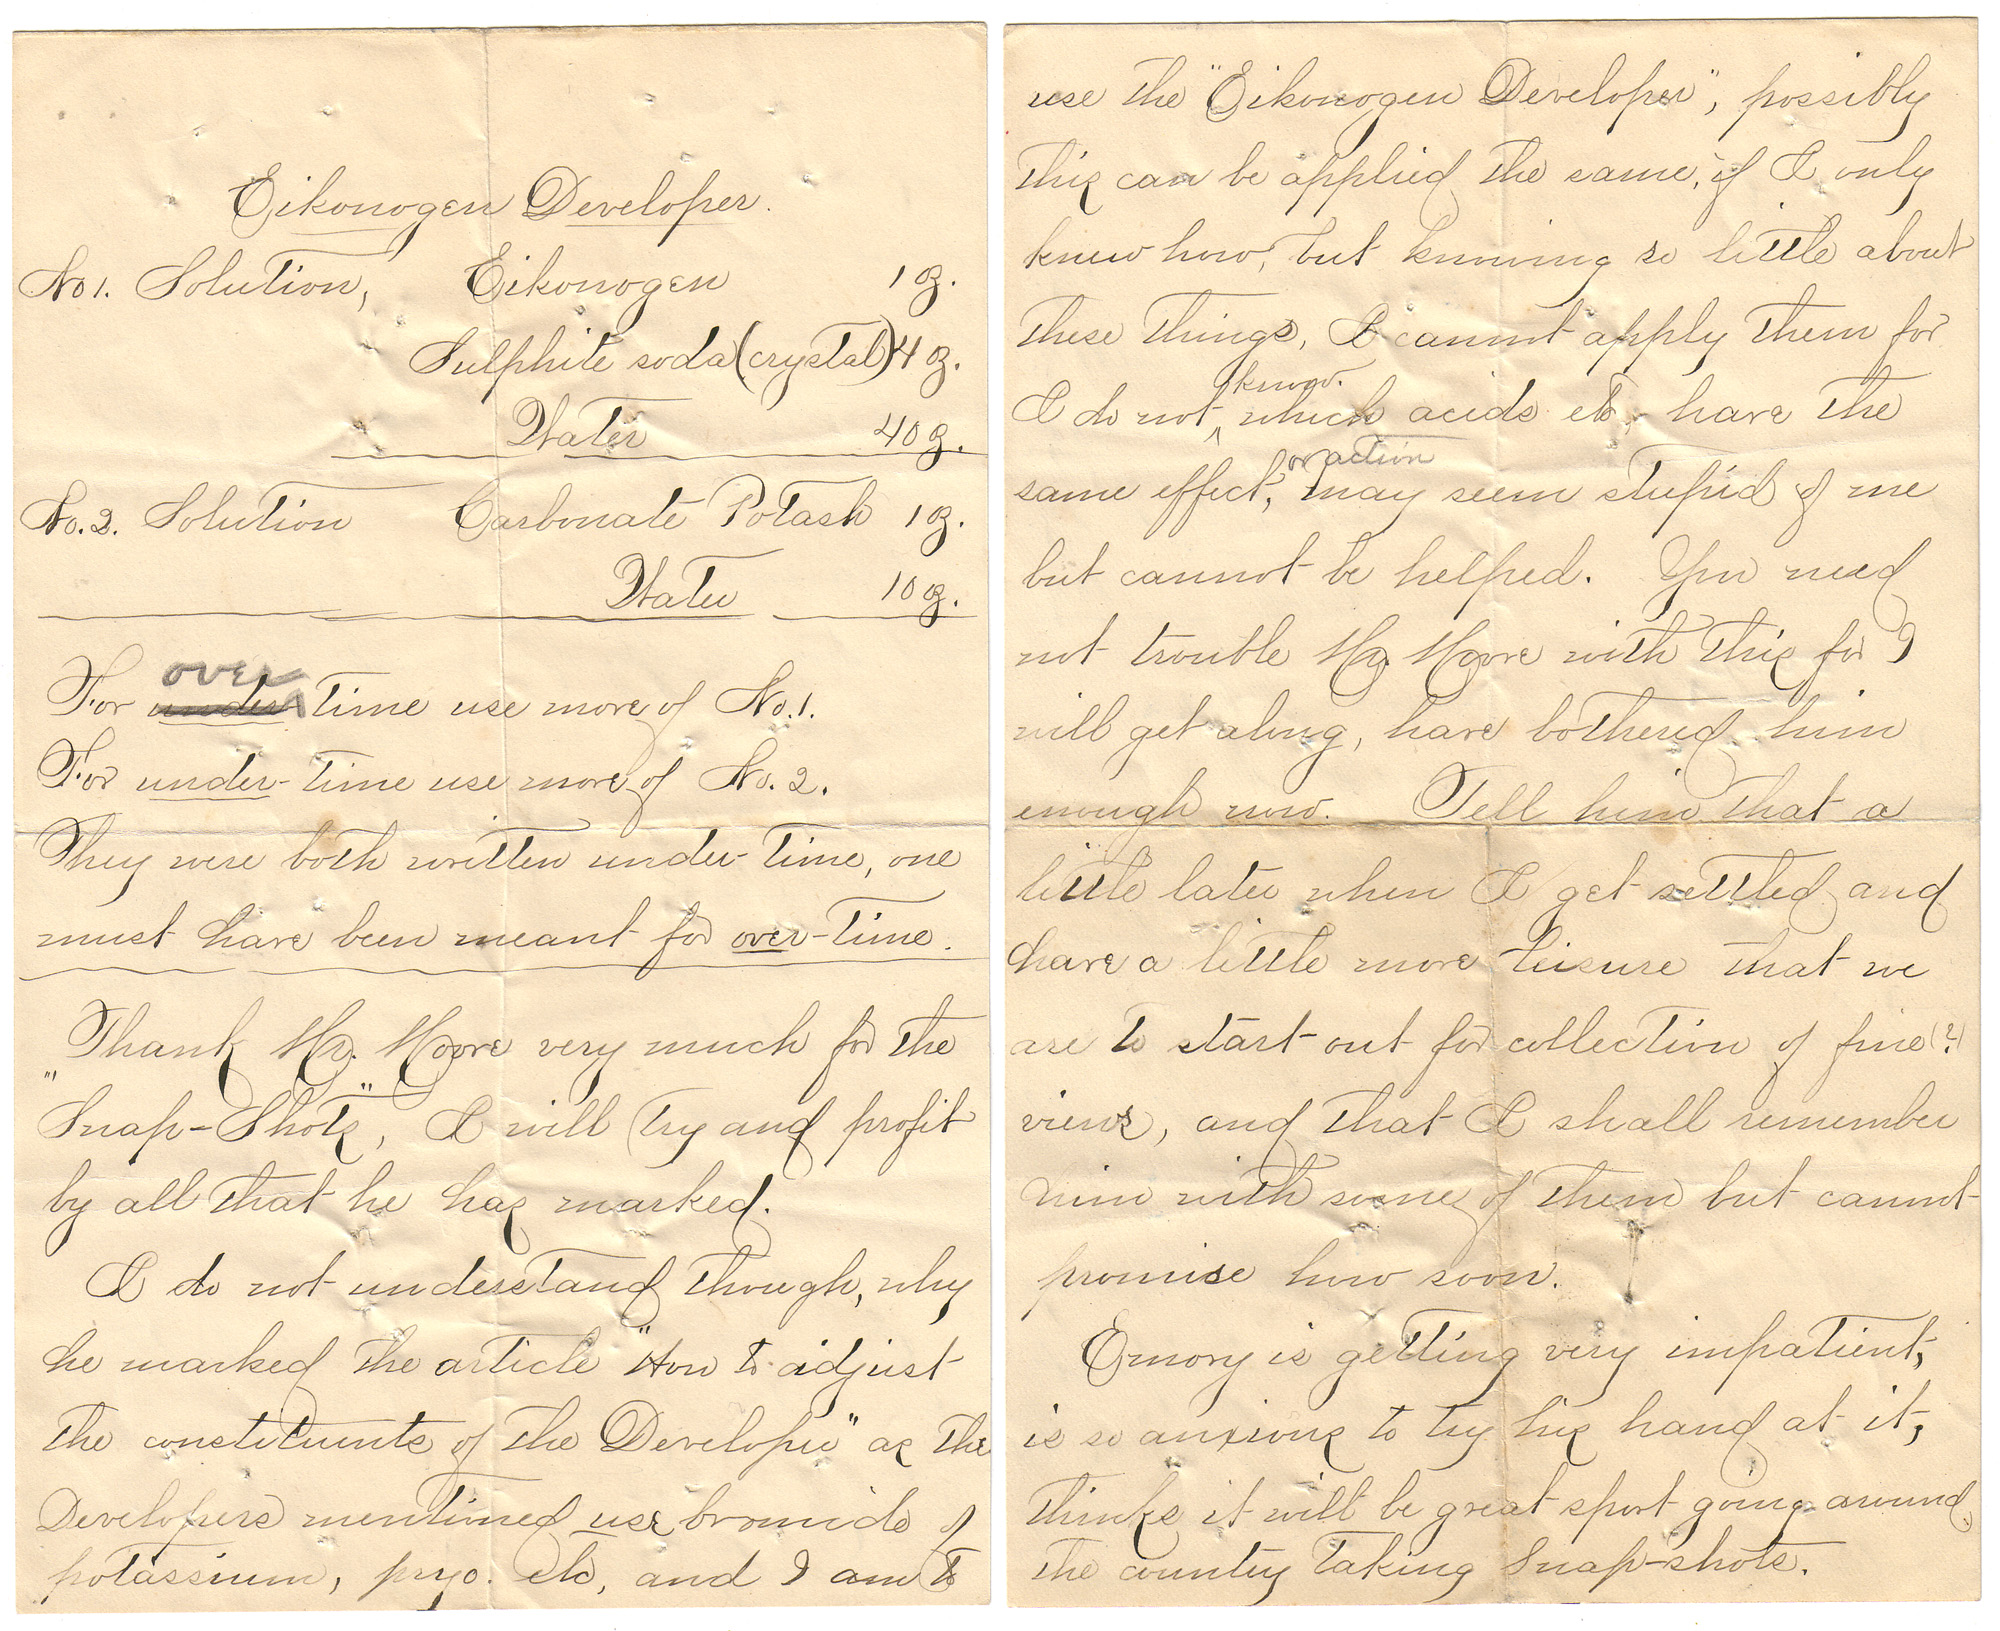 Eikonogen Developer.
No 1. Solution, Eikonogen 1 oz.
Sulphite soda (crystal) 4 oz.
Water 40 oz.
No. 2. Solution Carbonate Potash 1 oz.
Water 10 oz.
over
For under time use more of No. 1.
For under-time use more of No. 2.
They were both written under-time, one
must have been meant for over-time.
Thank Mr. Moore very much for the
"Snap-Shots", I will try and profit
by all that he has marked.
I do not understand though, why
he marked the article "How to adjust
the constituents of the Developer" as the
Developers mentioned use bromide of
potassium, pyro. etc, and I am to
use the "Eikonogen Developer", possibly
this can be applied the same, if I only
knew how, but knowing so little about
these things, I cannot apply them for
know.
I do not ^ which acids etc, have the
or action
same effect, may seem stupid of me
but cannot be helped. You need
not trouble Mr. Moore with this for I
will get along, have bothered him
enough now. Tell him that a
little later when I get settled and
have a little more leisure that we
are to start out for collection of fine (?)
views, and that I shall remember
him with some of them but cannot
promise how soon.
Emory is getting very impatient,
is so anxious to try his hand at it,
thinks it will be great sport going around
the country taking snap-shots.